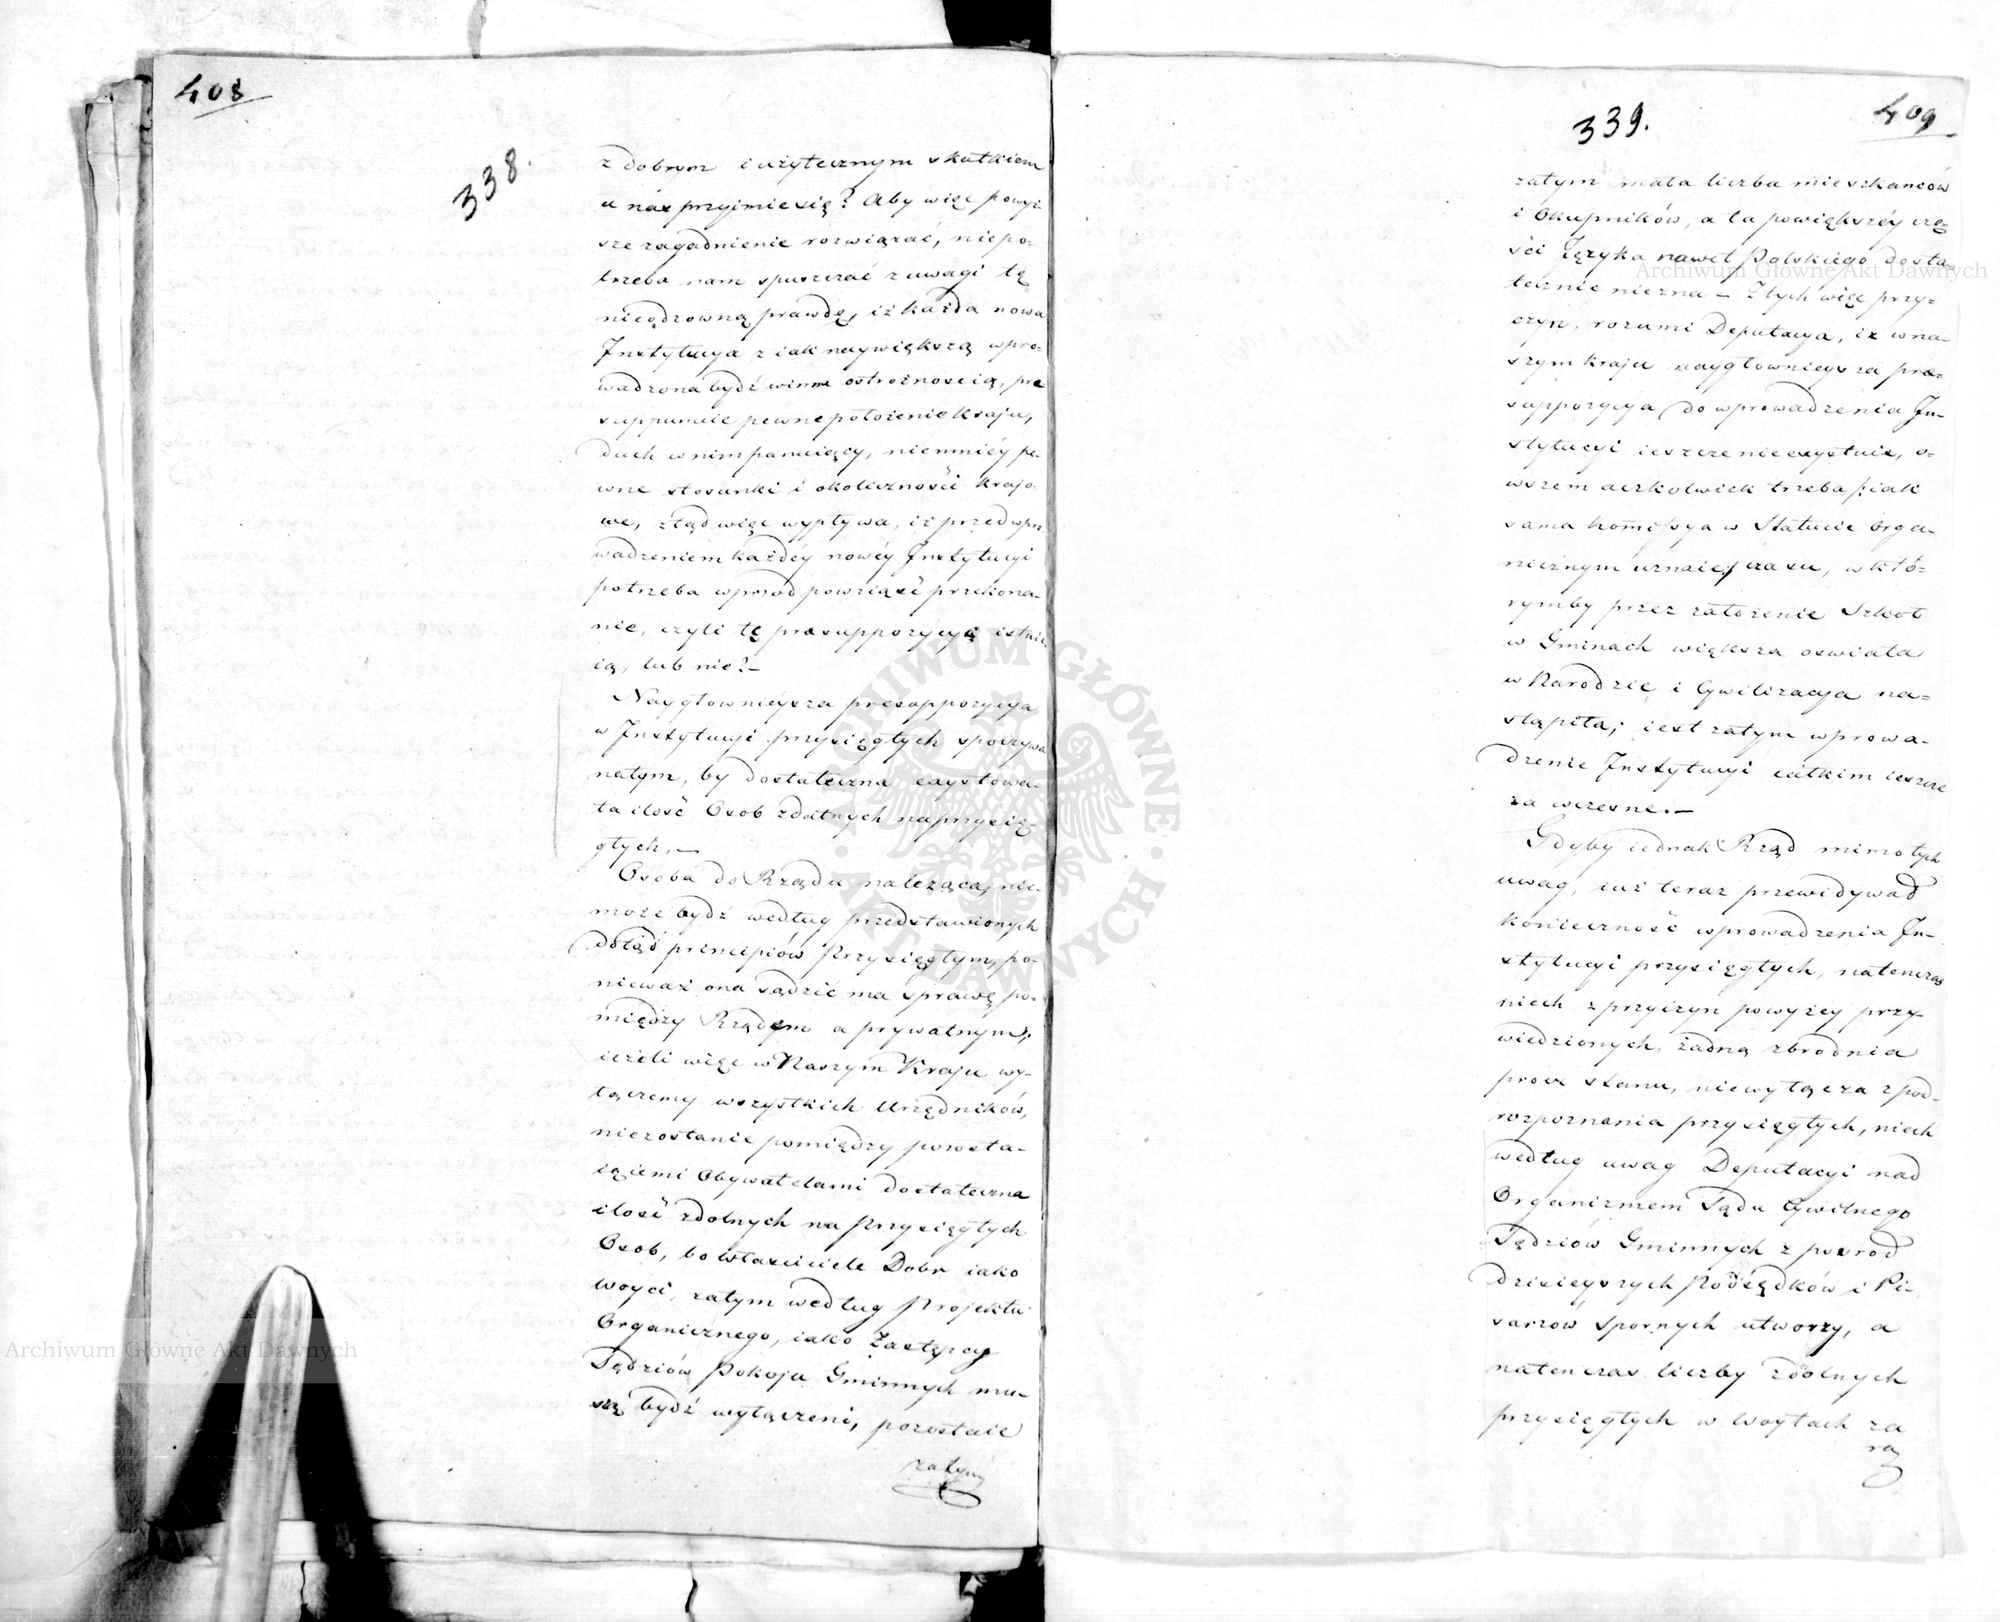 408
338.
z dobrym i użytecznym skutkiem
u nas przyimie się? Aby więc powyż-
sze zagadnienie rozwiązać, niepo-
trzeba nam spuszczać z uwagi tę
nieodzowną prawdę, iż każda nowa
Instytucya z iak naywiększą wpro-
wadzona bydź winna ostrożnością, pre
supponuie pewne położenie Kraju,
duch w nim panuiący, niemniéy pe-
wne stosunki i okoliczności Krajo-
we, ztąd więc wypływa, iż przed wpro
wadzeniem każdéy nowéy Instytucyi
potrzeba wprzód powziąść przekona-
nie, czyli tę presuppozycyą istnie
ią, lub nie? —
Naygłownieysza presuppozycya
w Instytucyi przysięgłych spoczywa
natym, by dostateczna exystowa-
ła ilość Osob zdatnych na przysię-
głych. —
Osoba do Rządu należąca, nie-
może bydź według przedstawionych
dotąd principiów Przysięgłym, po-
nieważ ona sądzić ma sprawę po-
między Rządem a prywatnym;
ieżeli więc w Naszym Kraju wy-
łączemy wszystkich Urzędników,
niezostanie pomiędzy pozosta-
iącemi Obywatelami dostateczna
ilość zdolnych na Przysięgłych
Osob, bo Właściciele Dobr iako
Woyci, zatym według Projektu
Organicznego, iako Zastępcy
Sędziów Pokoju Gminnych mu-
szą bydź wyłączeni, pozostaie
zatym
339.
409
zatym mała liczba mieszkanców
i Okupników, a ta powiększéy czę-
ści Języka nawet Polskiego dosta-
tecznie niezna — Z tych więc przy-
czyn, rozumi Deputacya, iż w na-
szym kraju naygłownieysza pre-
suppozycya do wprowadzenia In-
stytucyi ieszcze nieexystuie, o-
wszem aczkolwiek trzeba /: iak
sama Komissya w Statucie Orga-
nicznym uznaie :/ czasu, w któ-
rymby przez założenie Szkoł
w Gminach większa oswiata
w Narodzie i Cywilizacya na-
stąpiła; iest zatym wprowa-
dzenie Instytucyi całkim ieszcze
za wczesne. —
Gdyby iednak Rząd mimo tych
uwag, iuż teraz przewidywał
konieczność wprowadzenia In-
stytucyi przysięgłych, natenczas
niech z przyczyn powyżey przy-
wiedzionych, żadną zbrodnia
procz stanu, niewyłącza z pod-
rozpoznania przysięgłych, niech
według uwag Deputacyi nad
Organizmem Sądu Cywilnego
Sędziów Gminnych z posrod
dzisieyszych Podsędków i Pi-
sarzów Spornych utworzy, a
natenczas liczby zdolnych
przysięgłych w Woytach za
ra
Archiwum Główne Akt Dawnych
Archiwum Główne Akt Dawnych
ARCHIWUM GŁÓWNE AKT DAWNYCH